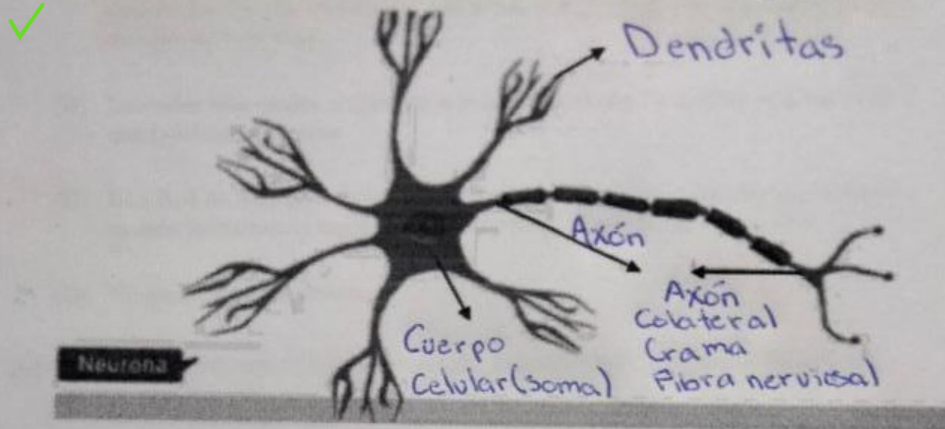 Dendritas
Axón
Axón
Colateral
Crama
Fibra nerviosa)
Cuerpo
Celular (soma)
Neurona